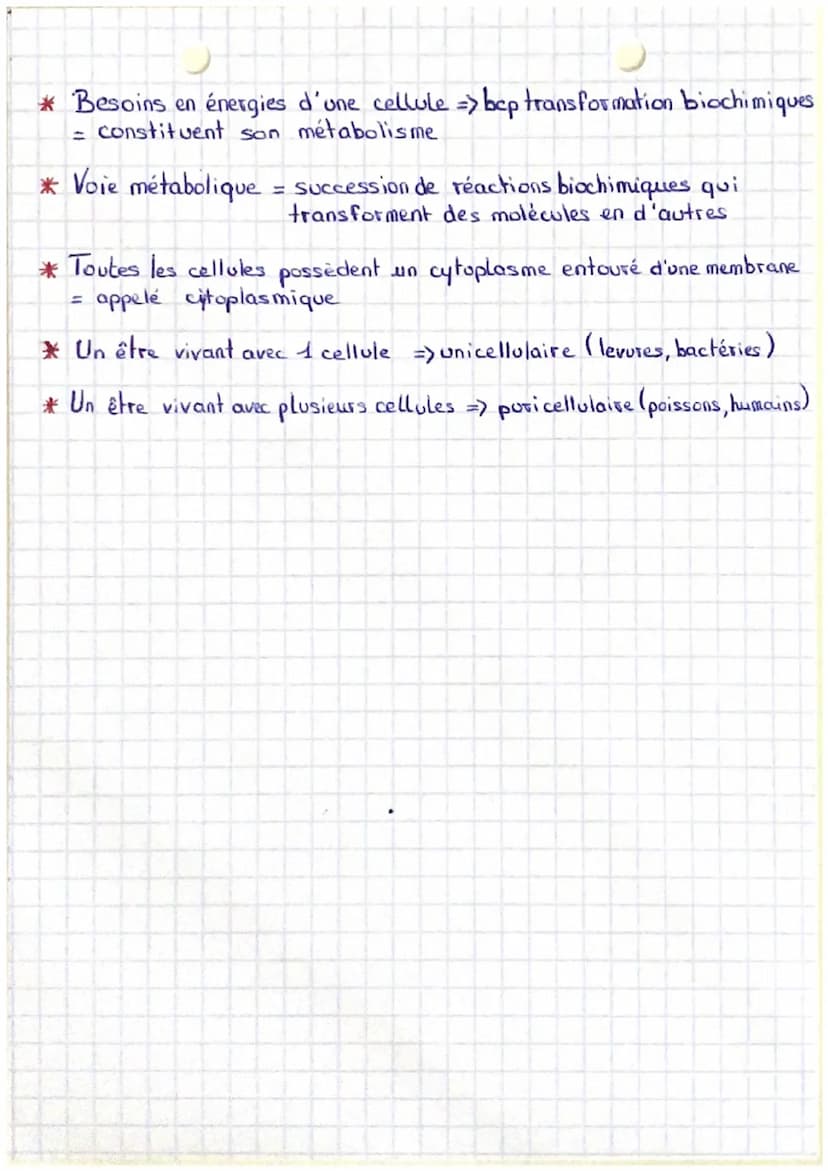 * Besoins en énergies d'une cellule => bcp transformation biochimiques
= constituent son métabolisme
* Voie métabolique = succession de réactions biochimiques qui
transforment des molécules en d'autres
* Toutes les cellules possèdent un cytoplasme entouré d'une membrane
= appelé cytoplasmique
* Un être vivant avec 1 cellule => unicellulaire (levures, bactéries)
* Un être vivant avec plusieurs cellules => puricellulaire (poissons, humains)